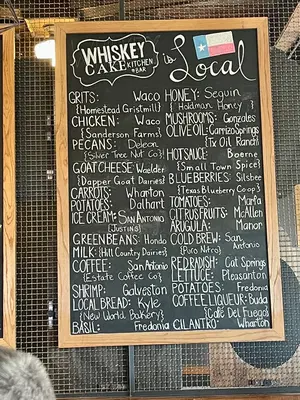 WHISKEY
CAKE KITCHEN
+ BAR
is
Local
GRITS: Waco
{Homestead Gristmill}
CHICKEN: Waco
{Sanderson Farms}
PECANS: Deleon
{Silver Tree Nut Co}
GOAT CHEESE: Waelder
{Dapper Goat Dairies}
CARROTS: Wharton
POTATOES: Dalhart
ICE CREAM: SAN ANTONIO
{JUSTINS}
GREEN BEANS: Hondo
MILK: {Hill Country Dairies}
COFFEE: San Antonio
{Estate Coffee Co}
SHRIMP: Galveston
LOCAL BREAD: Kyle
{New World Bakery}
BASIL: Fredonia
HONEY: Seguin
{Holdman Honey}
MUSHROOMS: Gonzales
OLIVE OIL: Carrizo Springs
{Tx Oil Ranch}
HOT SAUCE: Boerne
{Small Town Spice}
BLUEBERRIES: Silsbee
{Texas Blueberry Co op}
TOMATOES: Marfa
CITRUS FRUITS: McAllen
ARUGULA: Manor
COLD BREW: San
Antonio
{Pura Nitro}
RED RADISH: Cat Springs
LETTUCE: Pleasanton
POTATOES: Fredonia
COFFEE LIQUEUR: Buda
{Café Del Fuego}
CILANTRO: Wharton